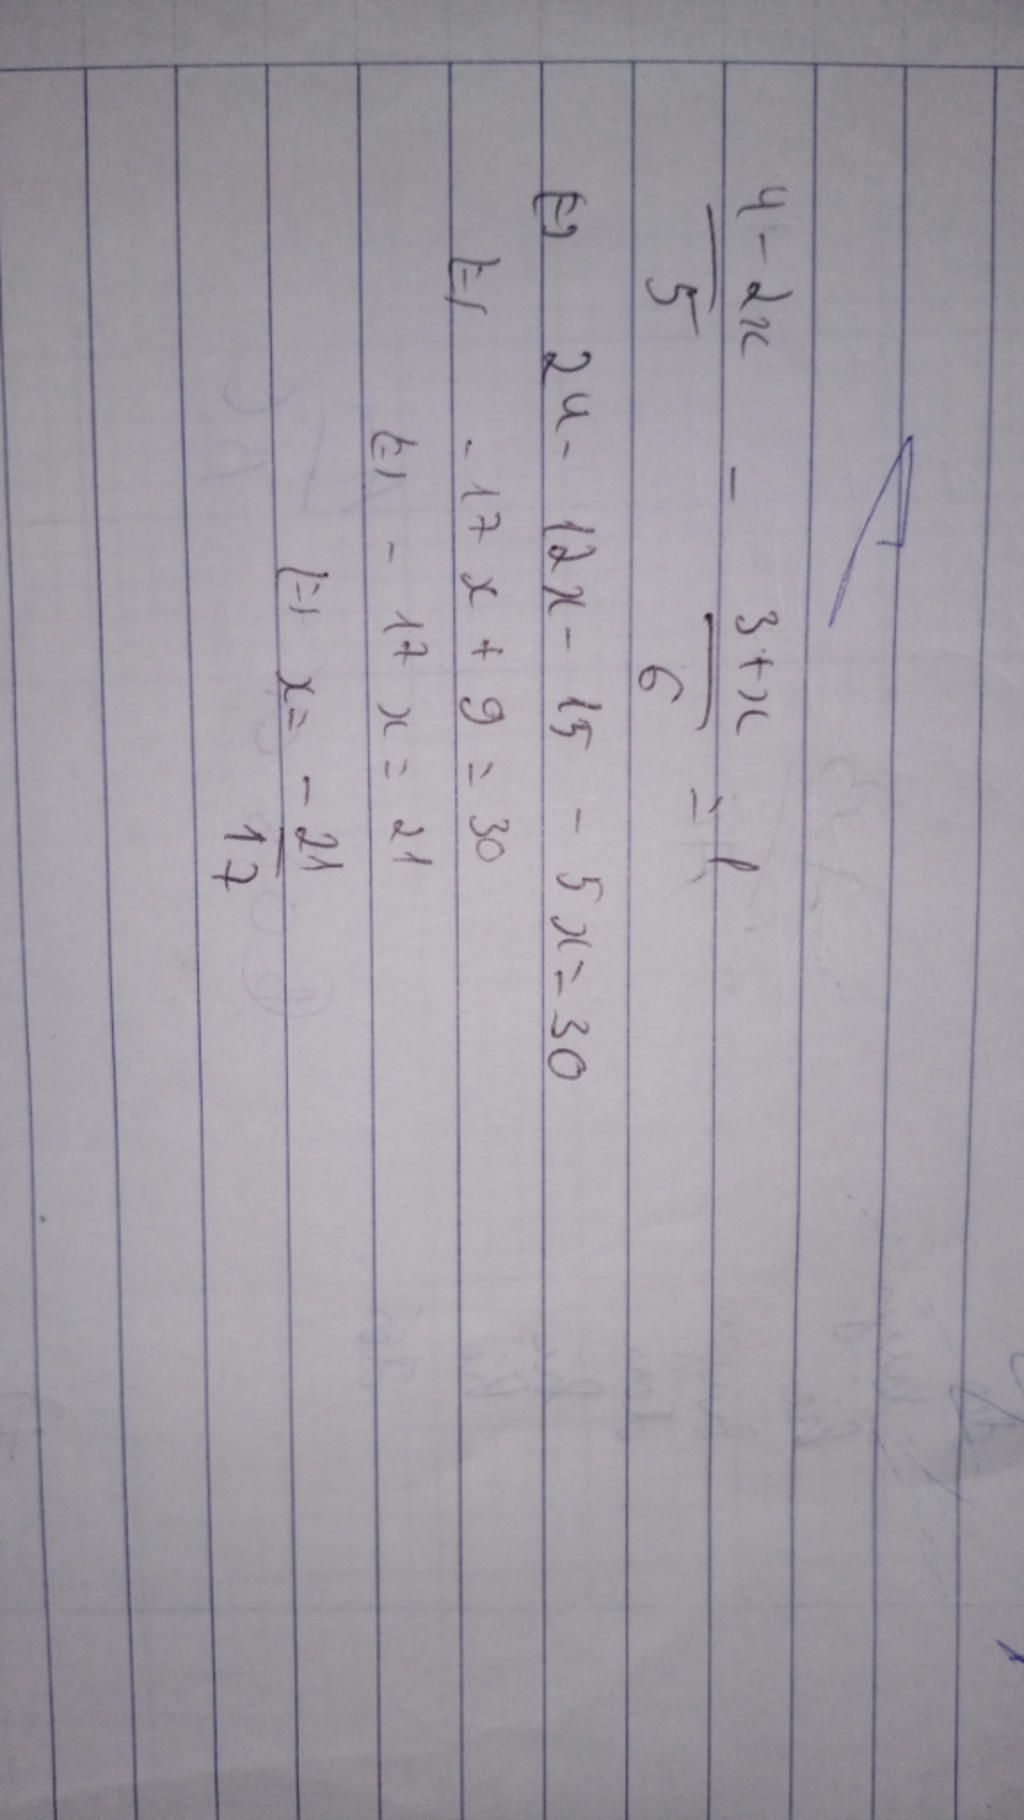 4-2x - 3+x = 1
5 6
⇔ 24 - 12x - 15 - 5x = 30
⇔ -17x + 9 = 30
⇔ -17x = 21
⇔ x = -21
17